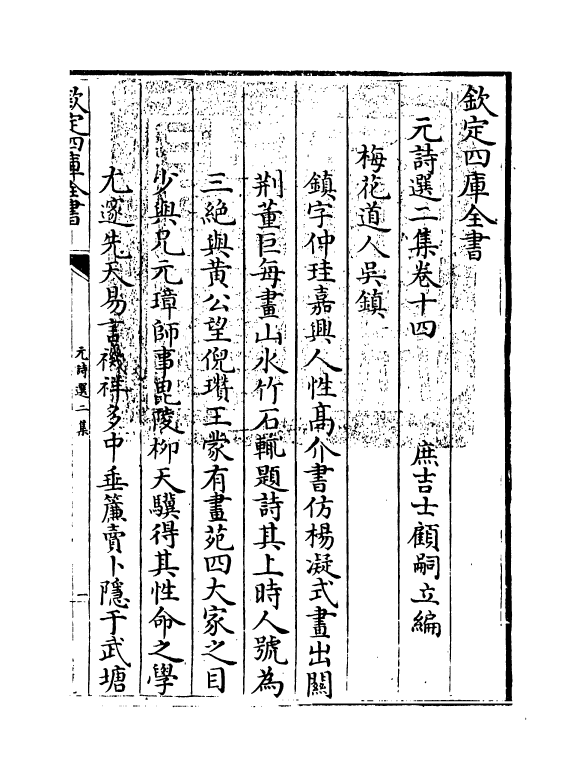 欽定四庫全書
元詩選二集卷十四
庶吉士顧嗣立編
梅花道人吳鎮
鎮字仲珪嘉興人性高介書仿楊凝式畫出關
荆董巨每畫山水竹石輒題詩其上時人號為
三絶與黄公望倪瓚王蒙有畫苑四大家之目
少與兄元璋師事毘陵柳天驥得其性命之學
尤邃先天易書禨祥多中垂簾賣卜隱于武塘
欽定四庫全書
元詩選二集
一